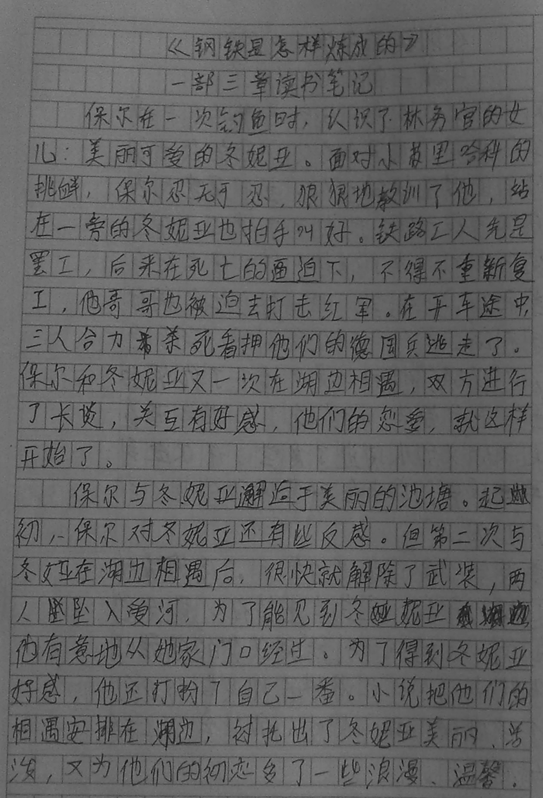 《钢铁是怎样炼成的》
一部三章读书笔记
保尔在一次钓鱼时，认识了林务官的女
儿：美丽可爱的冬妮亚。面对小苏里哈科的
挑衅，保尔忍无于忍，狠狠地教训了他，站
在一旁的冬妮亚也拍手叫好。铁路工人先是
罢工，后来在死亡的逼迫下，不得不重新复
工，他哥哥也被迫去打击红军。在开车途中，
三人合力杀死看押他们的德国兵逃走了。
保尔和冬妮亚又一次在湖边相遇，双方进行
了长谈，关互有好感，他们的恋爱，就这样
开始了。
保尔与冬妮亚邂逅于美丽的池塘。起
初，保尔对冬妮亚还有些反感。但第二次与
冬妮亚在湖边相遇后，很快就解除了武装，两
人坠入爱河，为了能见到冬妮亚
他有意地从她家门口经过。为了得到冬妮亚
好感，他还打扮了自己一番。小说把他们的
相遇安排在湖边，衬托出了冬妮亚美丽、活
泼，又为他们的初恋多了一些浪漫、温馨。